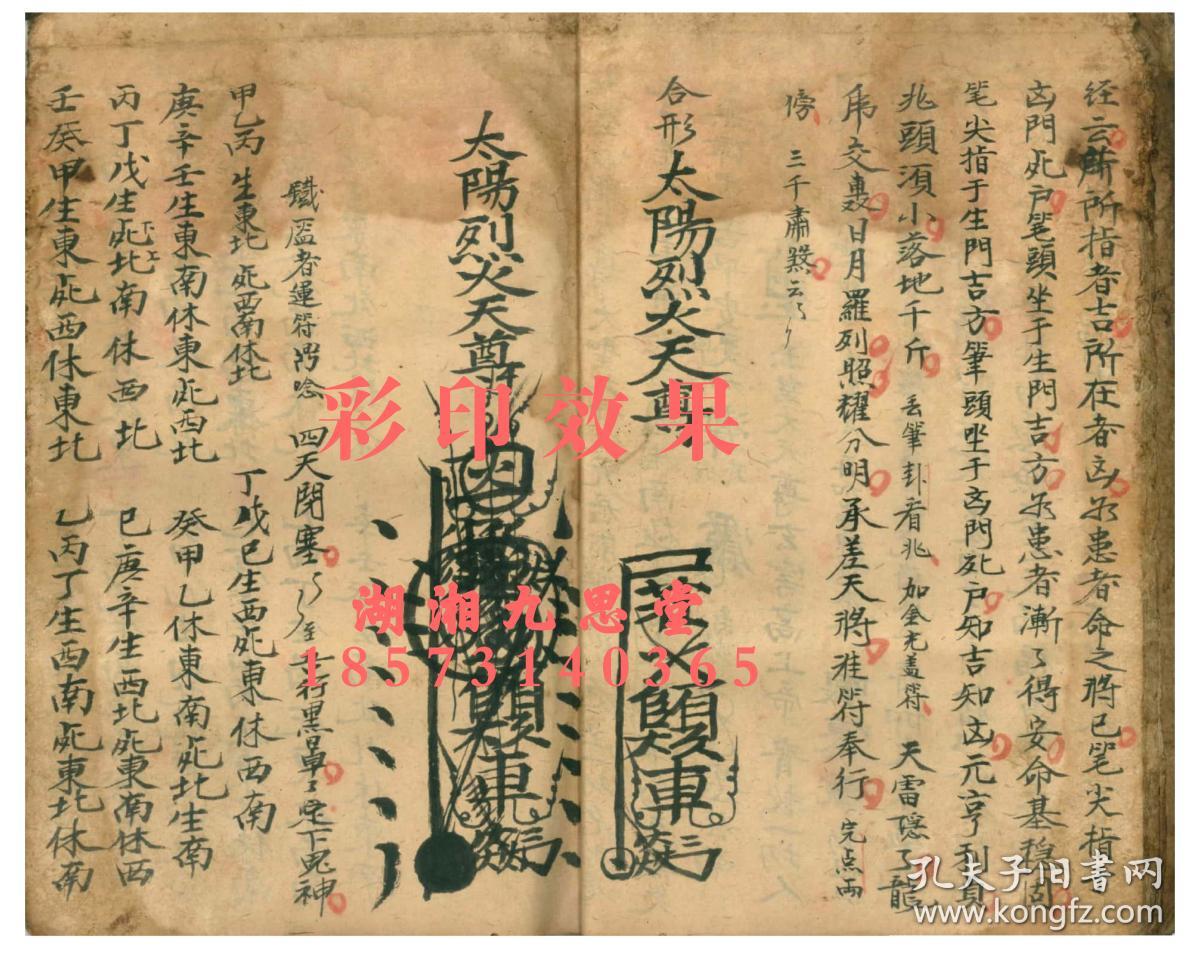 径云所所指者吉所在者凶為患者命之將已笔尖指
凶門死户笔頭坐于生門吉方為患者漸了得安命基穩固
笔尖指于生門吉方筆頭坐于凶門死户知吉知凶元亨利貞
兆頭須小落地千斤 丢筆卦看兆 加金光盖符 天雷隠了龍
虎交轰日月羅列照耀分明承差天將准符奉行 完点雨
傍 三千肅煞云
合形 太陽烈火天尊
太陽烈火天尊
鐵 者運符 唸 四天閉塞 至 五行黑旱 下鬼神
甲乙丙生東北死西南休北 丁戊已生西死東休西南
庚辛壬生東南休東死西北 癸甲乙休東南死北生南
丙丁戊生死北南休西北 已庚辛生西北死東南休西
壬癸甲生東死西休東北 乙丙丁生西南死東北休南
彩印效果
湖湘九思堂
18573140365
孔夫子旧书网
www.kongfz.com